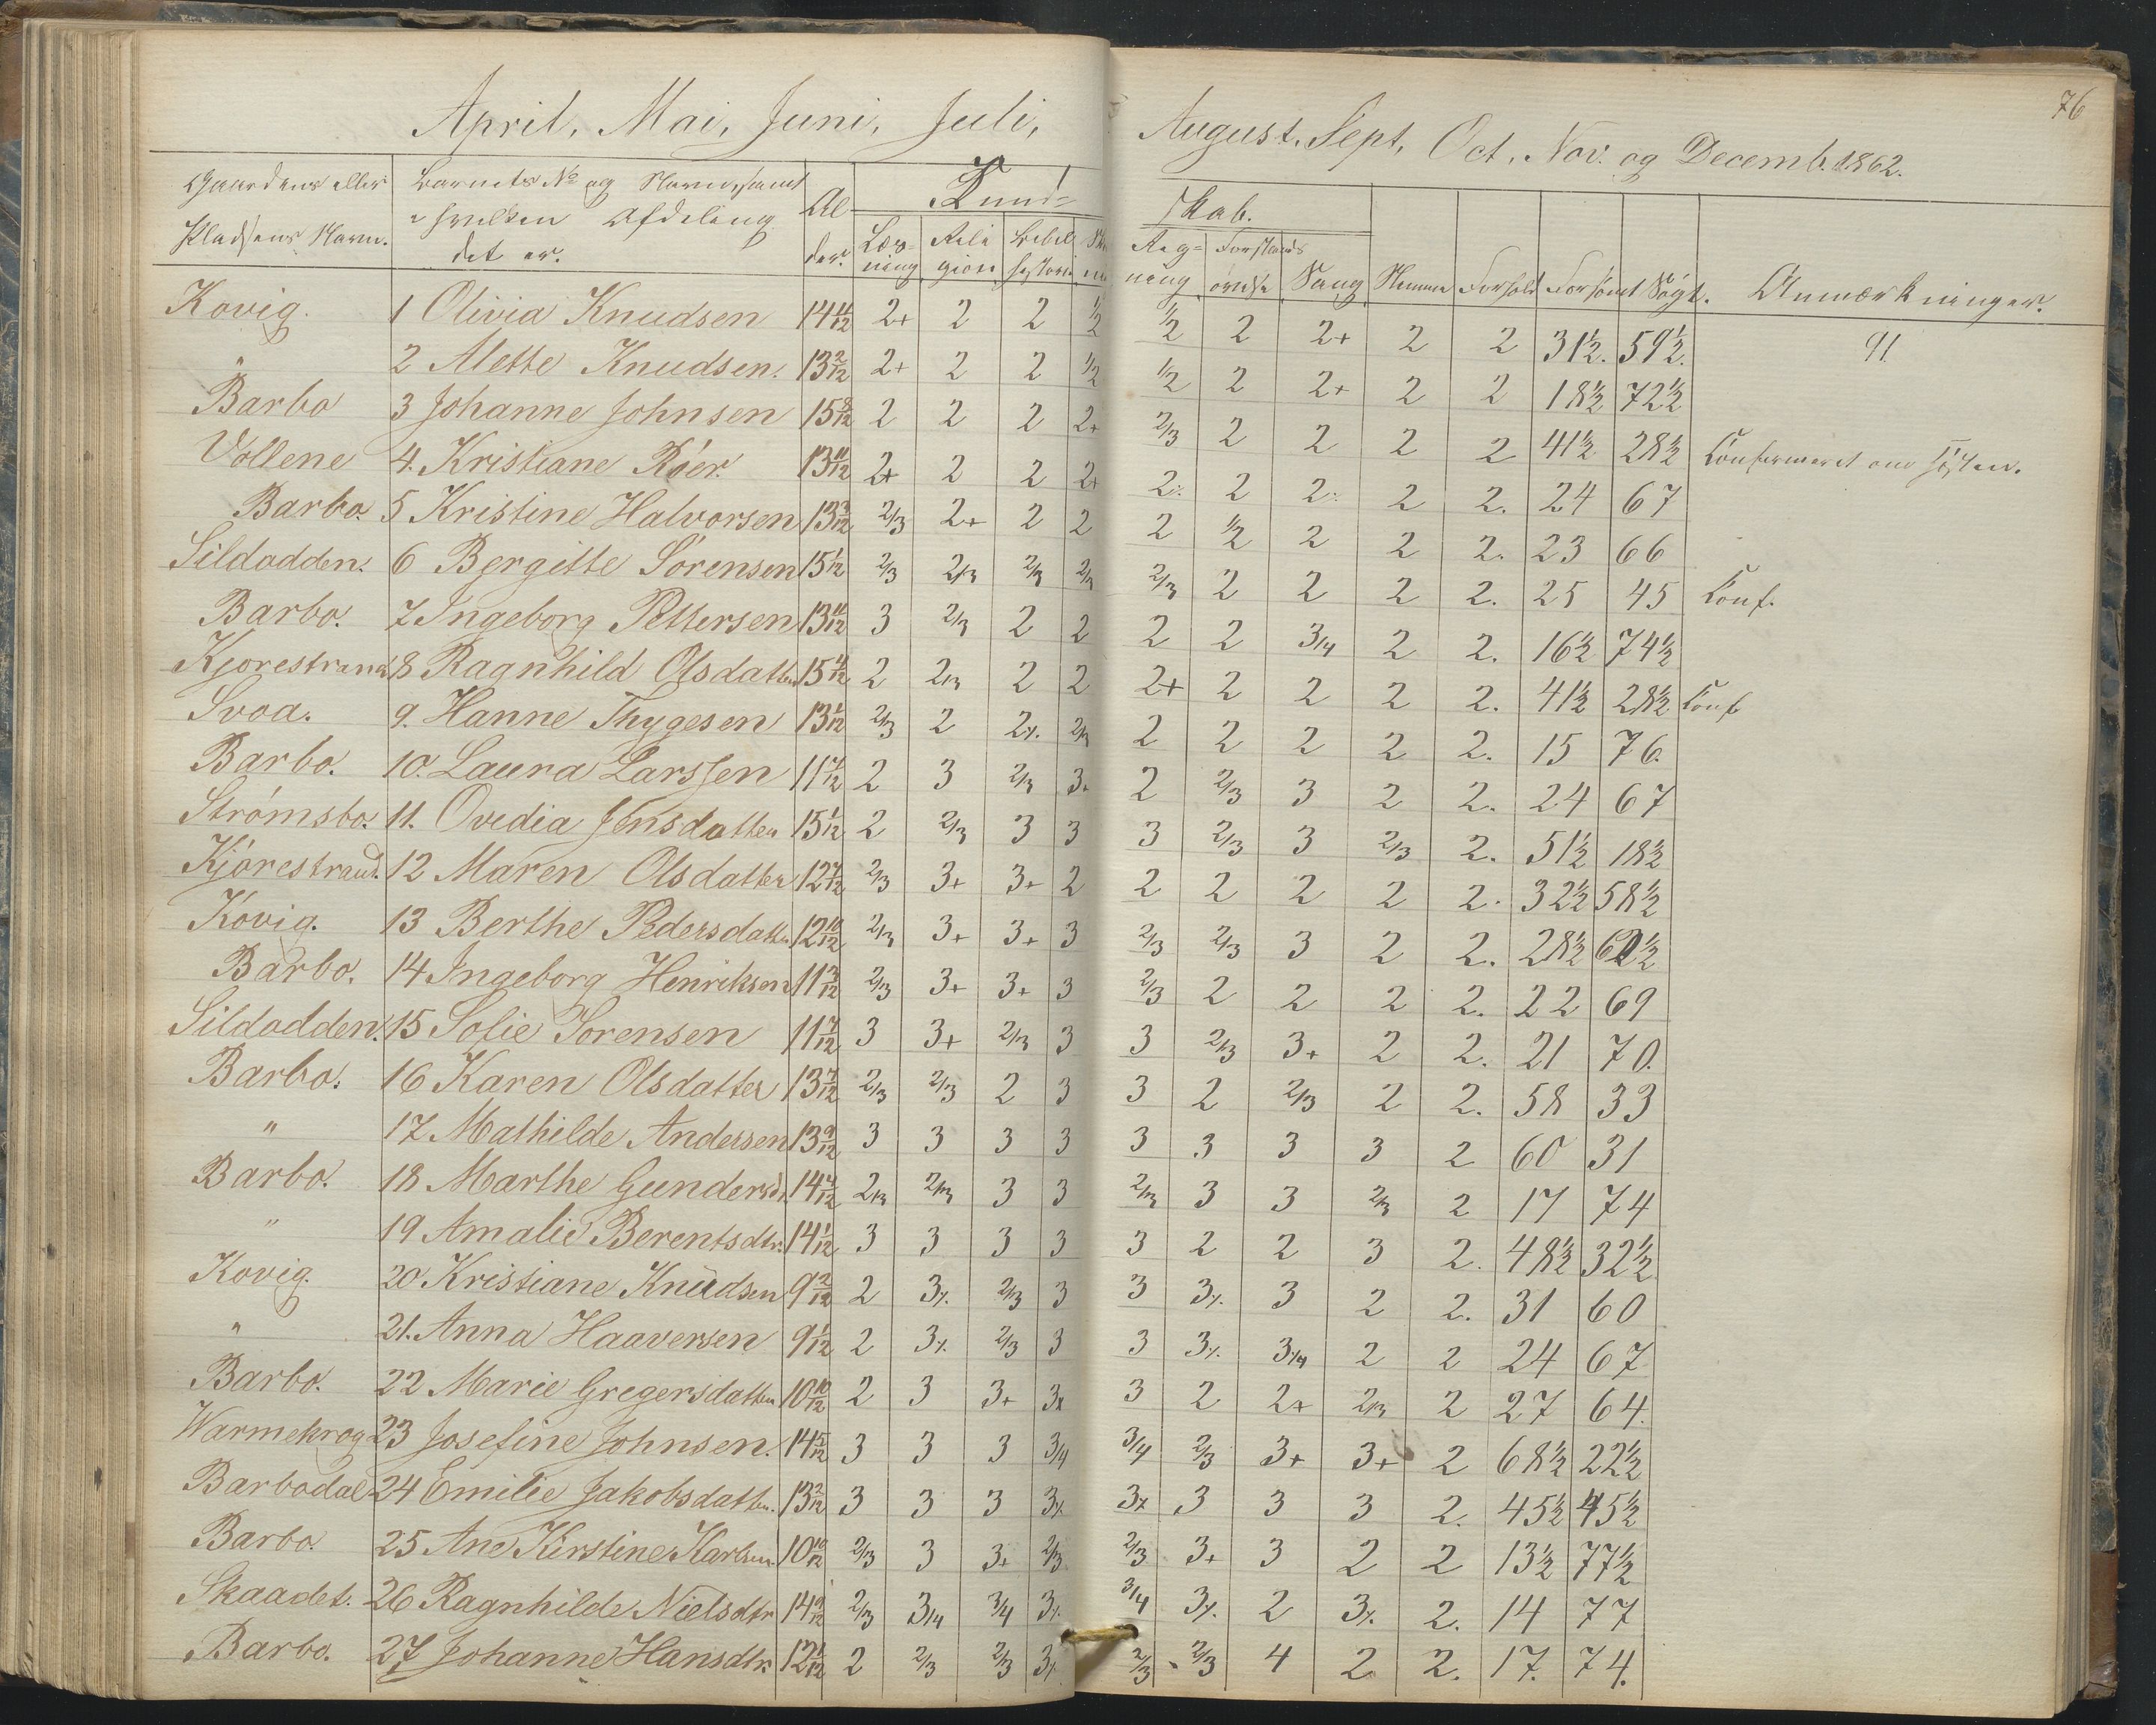 76
April, Mai, Juni, Juli, August. Sept, Oct, Nov. og Decemb. 1862.
Gaardens eller Pladsens Navn. | Barnets No og Navn, samt i hvilken Afdeling det er. | Alder. | Kundskab. | Læsning | Religion | Bibelhistorie | Regning | Forstandsøvelse | Sang | Nemme | Forhold | Forsømt | Søgt. | Anmærkninger.
Kovig. 1 Olivia Knudsen 14 4/12 2+ 2 2 1/2 1/2 2 2+ 2 2 31½. 59½. 91
" 2 Alette Knudsen. 13 2/12 2+ 2 2 1/2 1/2 2 2+ 2 2 18½ 72½
Barbo 3 Johanne Johnsen 15 8/12 2 2 2 2+ 2/3 2 2 2 2 41½ 28½ Confirmeret om Høsten.
Vollene 4. Kristiane Röer. 13 11/12 2+ 2 2 2+ 2% 2 2% 2 2. 24 67
Barbo. 5 Kristine Halvorsen 13 3/12 2/3 2+ 2 2 2 1/2 2 2 2. 23 66
Sildodden. 6 Bergitte Sörensen 15 1/12 2/3 2/3 2/3 2/3 2/3 2 2 2 2. 25 45 Conf.
Barbo. 7 Ingeborg Pettersen 13 11/12 3 2/3 2 2 2 2 3/4 2 2. 16½ 74½
Kjorestrand 8 Ragnhild Olsdatter 15 4/12 2 2/3 2 2 2+ 2 2 2 2. 41½ 28½ Conf
Svoa. 9. Hanne Thygesen 13 1/12 2/3 2 2% 2/3 2 2 2 2 2. 15 76.
Barbo. 10. Laura Larssen 11 7/12 2 3 2/3 3+ 2 2/3 3 2 2. 24 67
Strömsbo. 11. Ovidia Jensdatter 15 1/12 2 2/3 3 3 3 2/3 3 2/3 2. 51½ 18½
Kjörestrand. 12 Maren Olsdatter 12 7/12 2/3 3+ 3+ 2 2 2 2 2 2. 32½ 58½
Kovig. 13 Berthe Pedersdatter 12 10/12 2/3 3+ 3+ 3 2/3 2/3 3 2 2. 28½ 62½
Barbo. 14 Ingeborg Henriksen 11 3/12 2/3 3+ 3+ 3 2/3 2 2 2 2. 22 69
Sildodden. 15 Sofie Sorensen 11 7/12 3 3+ 2/3 3 3 2/3 3+ 2 2. 21 70.
Barbo. 16 Karen Olsdatter 13 7/12 2/3 2/3 2 3 3 2 2/3 2 2. 58 33
" 17 Mathilde Andersen 13 9/12 3 3 3 3 3 3 3 3 2 60 31
Barbo. 18 Marthe Gundersdtr 14 7/12 2/3 2/3 3 3 2/3 3 3 2/3 2 17 74
" 19 Amalie Berentsdtr. 14 1/12 3 3 3 3 3 2 2 3 2. 48½ 32½
Kovig. 20 Kristiane Knudsen 9 2/12 2 3% 2/3 3 3 3% 3 2 2. 31 60
" 21. Anna Haaversen 9 1/12 2 3% 2/3 3 3 3% 3/4 2 2 24 67
Barbo. 22 Marie Gregersdatter 10 10/12 2 3 3+ 3% 3 2 2+ 2/3 2 27 64.
Warmekrog 23 Josefine Johnsen. 14 5/12 3 3 3 3/4 3/4 2/3 3+ 3+ 2 68½ 22½
Barbodal 24 Emilie Jakobsdatter. 13 2/12 3 3 3 3% 3% 3 3 3 2. 45½ 45½
Barbo. 25 Ane Kirstine Karlsen 10 10/12 2/3 3 3+ 2/3 2/3 3+ 3 2 2 13½ 77½
Skaadet. 26 Ragnhilde Nielsdtr 14 9/12 2/3 3/4 3/4 3% 3/4 3% 2 3% 2. 14 77
Barbo. 27 Johanne Hansdtr 12 1/12 2 2/3 2/3 3% 2/3 2/3 4 2 2. 17. 74.